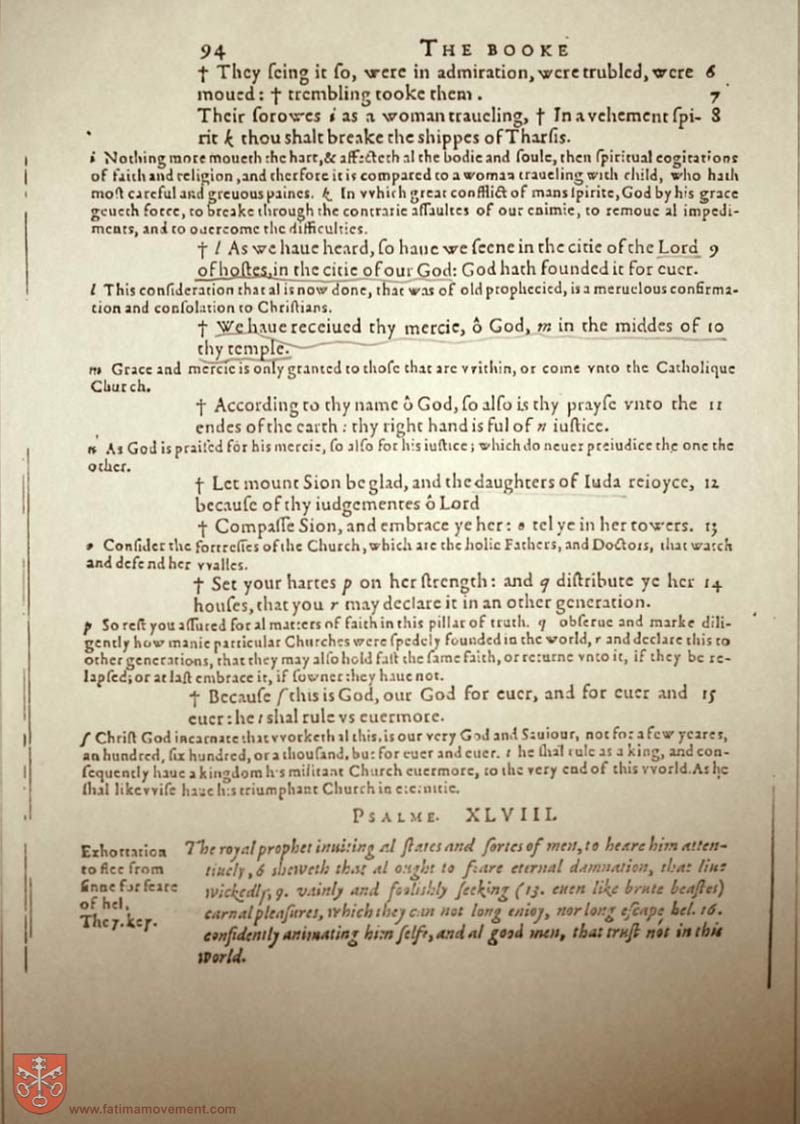 94 THE BOOKE
† They ſeing it ſo, were in admiration, were trubled, were 6
moued: † trembling tooke them. 7
Their ſorowes i as a woman traueling, † In a vehement ſpi- 8
rit k thou shalt breake the shippes of Tharſis.
i Nothing more moueth the hart, & affecteth al the bodie and ſoule, then ſpiritual cogitations
of faith and religion, and therfore it is compared to a woman traueling with child, who hath
moſt careful and greuous paines. k In vvhich great conflict of mans ſpirite, God by his grace
geueth force, to breake through the contrarie aſſaultes of our enimie, to remoue al impedi-
ments, and to ouercome the difficulties.
† l As we haue heard, ſo haue we ſeene in the citie of the Lord 9
of hoſtes, in the citie of our God: God hath founded it for euer.
l This conſideration that al is now done, that was of old prophecied, is a meruelous confirma-
tion and conſolation to Chriſtians.
† We haue receiued thy mercie, ô God, m in the middes of 10
thy temple.
m Grace and mercie is only granted to thoſe that are vvithin, or come vnto the Catholique
Church.
† According to thy name ô God, ſo alſo is thy prayſe vnto the 11
endes of the earth: thy right hand is ful of n iuſtice.
n As God is praiſed for his mercie, ſo alſo for his iuſtice; which do neuer preiudice the one the
other.
† Let mount Sion be glad, and the daughters of Iuda reioyce, 12
becauſe of thy iudgementes ô Lord
† Compaſſe Sion, and embrace ye her: o tel ye in her towers. 13
o Conſider the fortreſſes of the Church, which are the holie Fathers, and Doctors, that watch
and defend her vvalles.
† Set your hartes p on her ſtrength: and q diſtribute ye her 14
houſes, that you r may declare it in an other generation.
p So reſt you aſſured for al matters of faith in this pillar of truth. q obſerue and marke dili-
gently how manie particular Churches were ſpedely founded in the world, r and declare this to
other generations, that they may alſo hold faſt the ſame faith, or returne vnto it, if they be re-
lapſed; or at laſt embrace it, if ſowner they haue not.
† Becauſe ſ this is God, our God for euer, and for euer and 15
euer: he t shal rule vs euermore.
ſ Chriſt God incarnate that vvorketh al this, is our very God and Sauiour, not for a few yeares,
an hundred, ſix hundred, or a thouſand, but for euer and euer. t he ſhal rule as a king, and con-
ſequently haue a kingdom his militant Church euermore, to the very end of this vvorld. As he
ſhal likevviſe haue his triumphant Church in eternitie.
PSALME. XLVIII.
Exhortation
to flee from
ſinne for feare
of hel.
The 7. key.
The royal prophet inuiting al ſtates and ſortes of men, to heare him atten-
tiuely, 6 sheweth that al ought to feare eternal damnation, that liue
wickedly, 9. vainly and foolishly ſeeking (13. euen like brute beaſtes)
carnal pleaſures, which they can not long enioy, nor long eſcape hel. 16.
confidently animating him ſelfe, and al good men, that truſt not in this
world.
www.fatimamovement.com